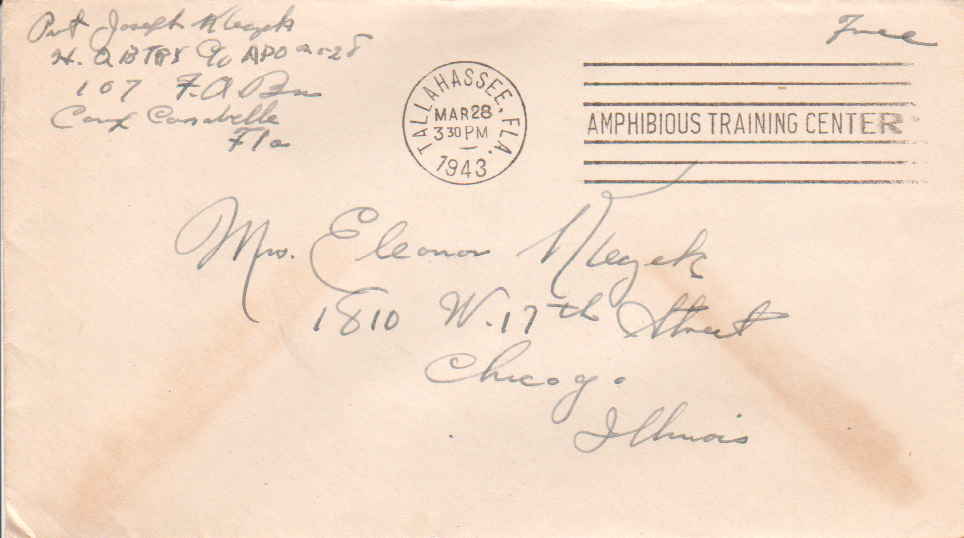 Pvt Joseph Klezek
H. Q BTRY c/o APO no 28
107 F.A Bn
Camp Carabelle
Fla
Free
TALLAHASSEE, FLA.
MAR 28
3 30 PM
1943
AMPHIBIOUS TRAINING CENTER
Mrs. Eleanor Klezek
1810 W. 17th Street
Chicago
Illinois